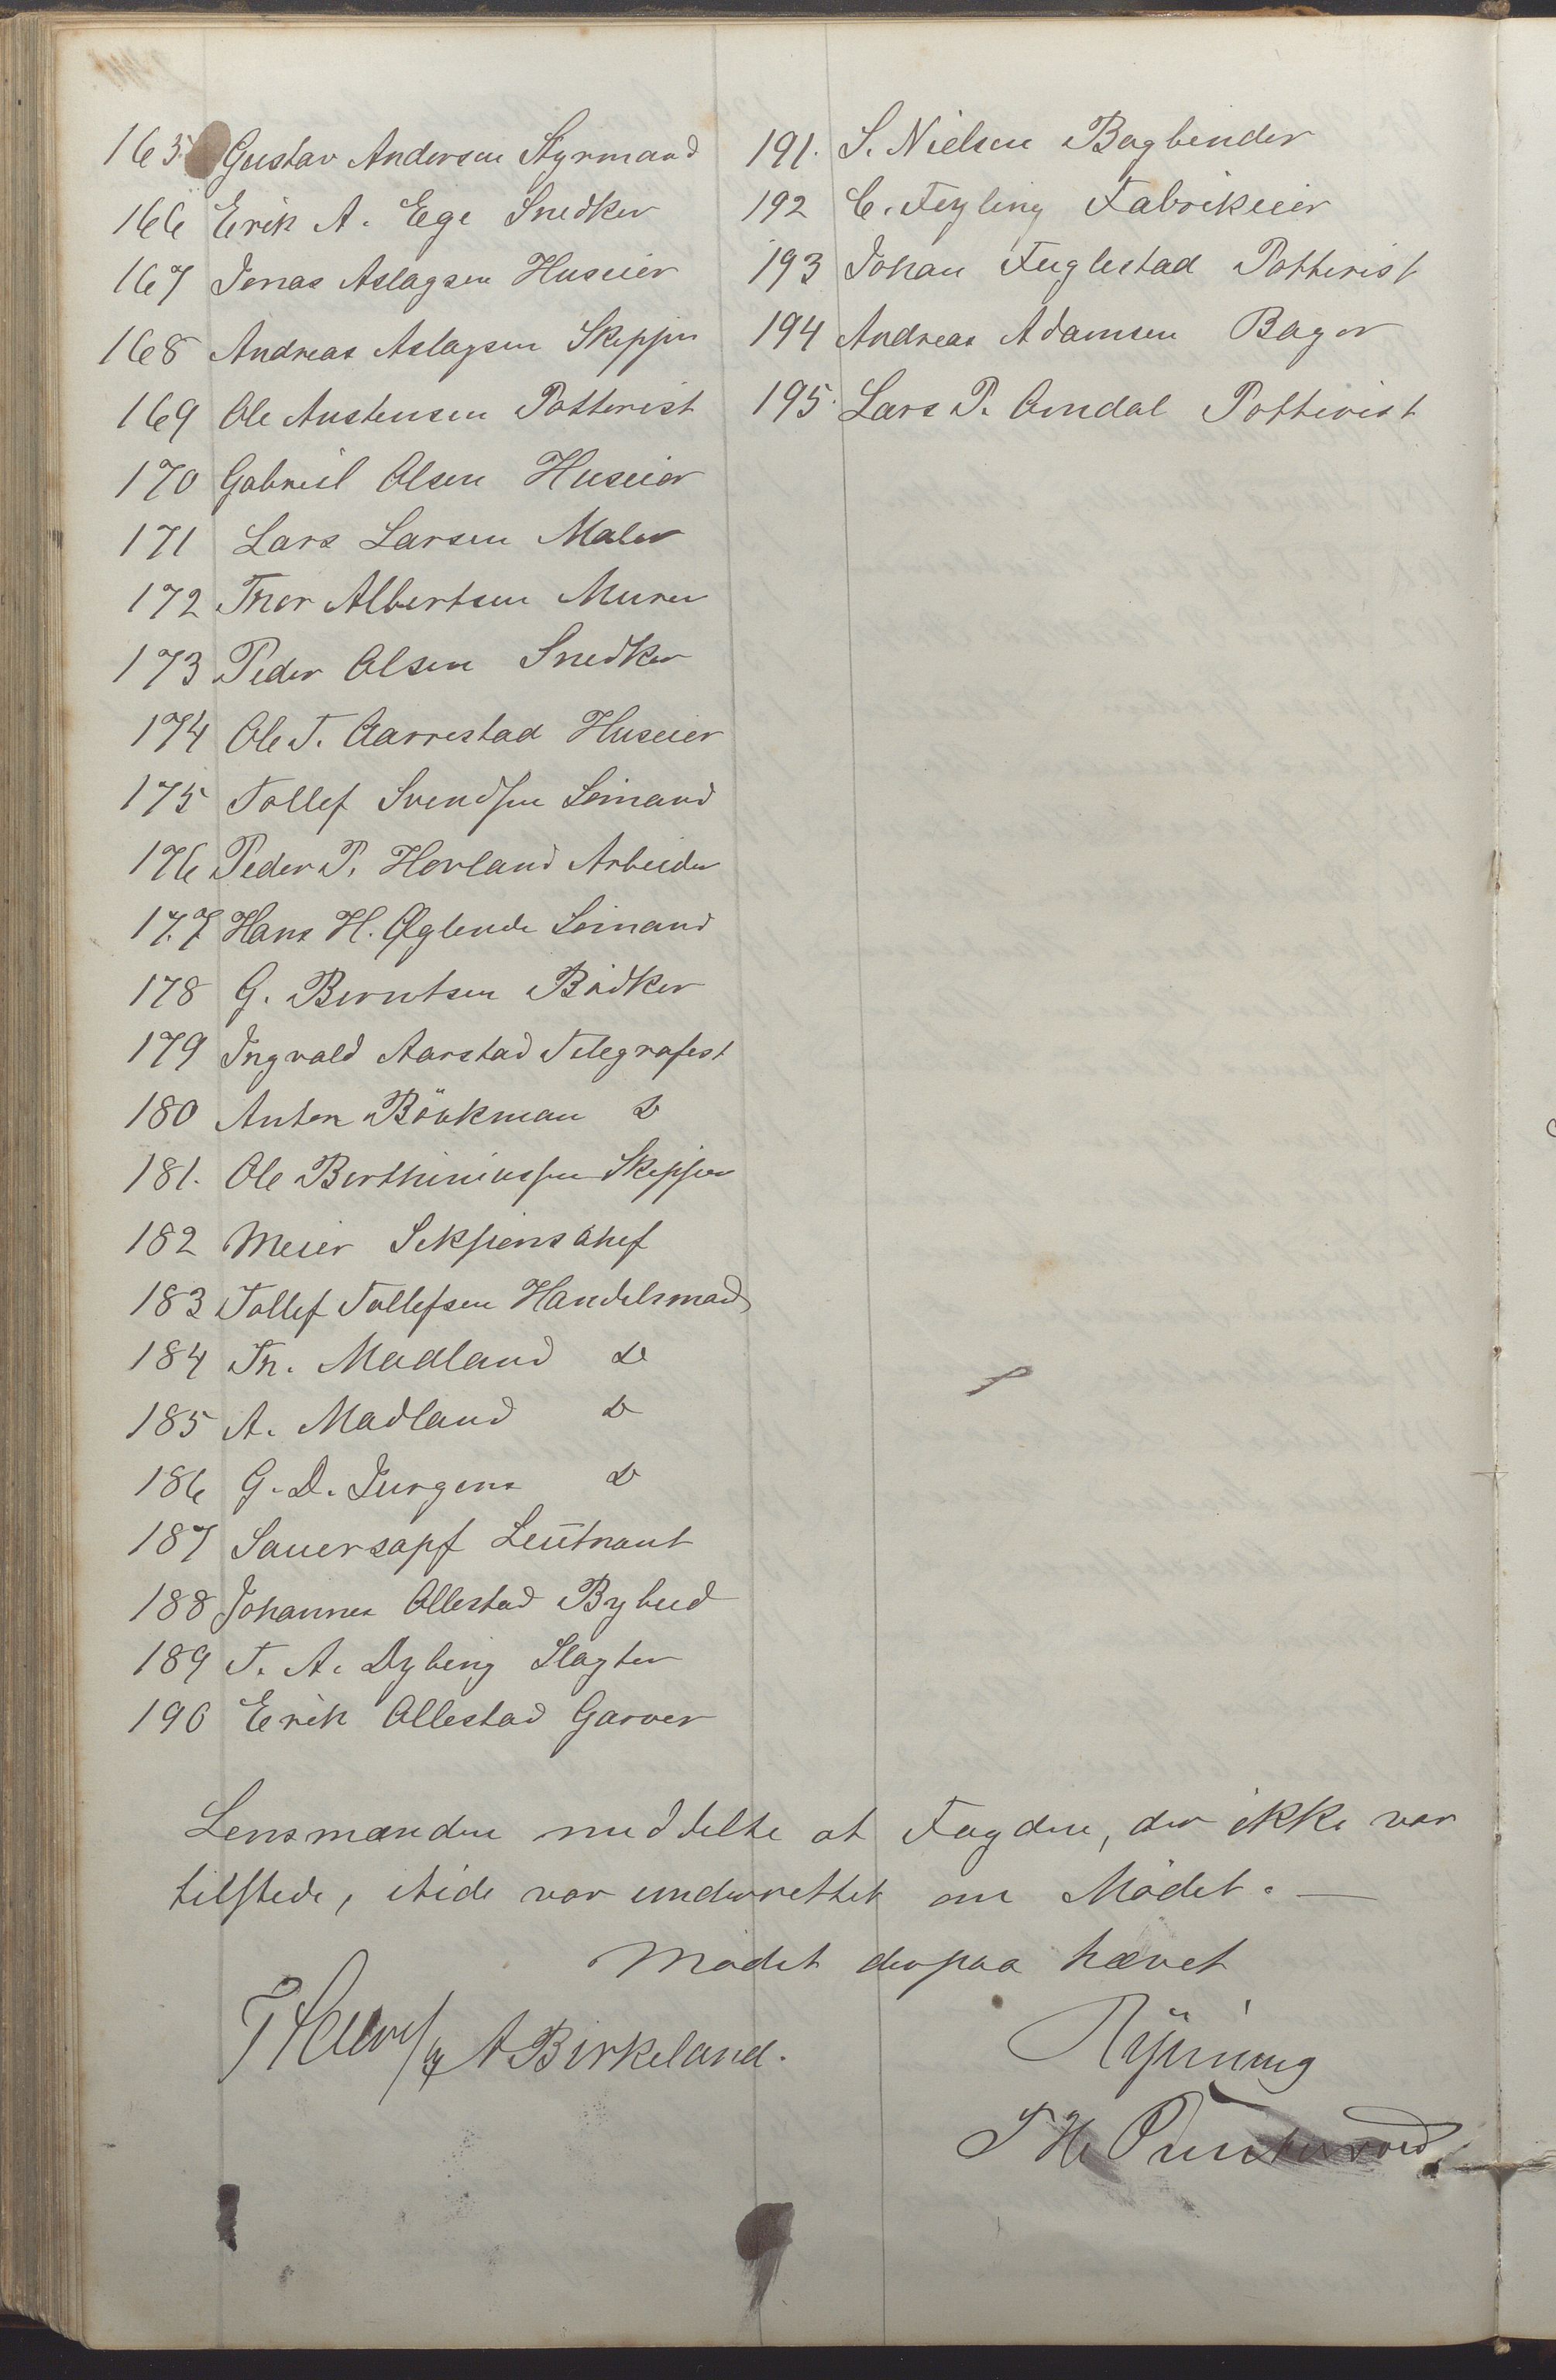 165. Gustav Andersen Styrmand
166 Erik A. Ege Snedker
167 Jonas Aslagsen Huseier
168 Andreas Aslagsen Skipper
169 Ole Austensen Potterist
170 Gabriel Olsen Huseier
171 Lars Larsen Maler
172 Thor Albertsen Murer
173 Peder Olsen Snedker
174 Ole T. Aarrestad Huseier
175 Tollef Svendsen Sömand
176 Peder P. Hovland Arbeider
177 Hans H. Öglende Sömand
178 G. Berntsen Bödker
179 Ingvald Aarstad Telegrafist
180 Anton Böckman Do
181. Ole Berthiniussen Skipper
182 Meier Seksionschef
183 Tollef Tollefsen Handelsmand
184 Th. Madland Do
185 A. Madland Do
186 G. D. Jurgens Do
187 Sauersapf Leutnant
188 Johannes Ollestad Bybud
189 T. A. Dybing Slagter
190 Erik Ollestad Garver
191. S. Nielsen Bogbinder
192 C. Feyling Fabrikeier
193 Johan Fuglestad Potterist
194 Andreas Adamsen Bager
195. Lars P. Omdal Potterist
Lensmanden meddelte at Fogden, der ikke var
tilstede, itide var underrettet om Mödet. —
Mödet derpaa hævet
A Birkeland.